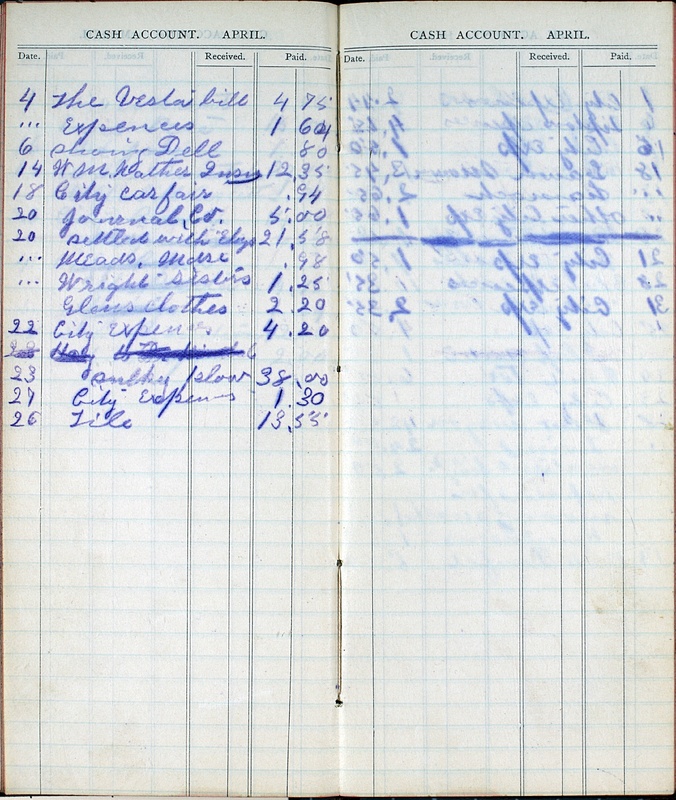 CASH ACCOUNT. APRIL.
Date. Received. Paid.
4 The Vesta bill 4 75
... Expences 1 60
6 shoing Dell 80
14 W.M. Mather 12.35
18 City carfair .94
20 Journal, Co. 5.00
20 settled with 21.58
... Meads, .98
... Wright Sisters 1.25
Glens clothes 2.20
22 City Expences 4.20
23 sulky plow 38.00
27 City Expens 1.30
26 Tile 13.55
CASH ACCOUNT. APRIL.
Date. Received. Paid.